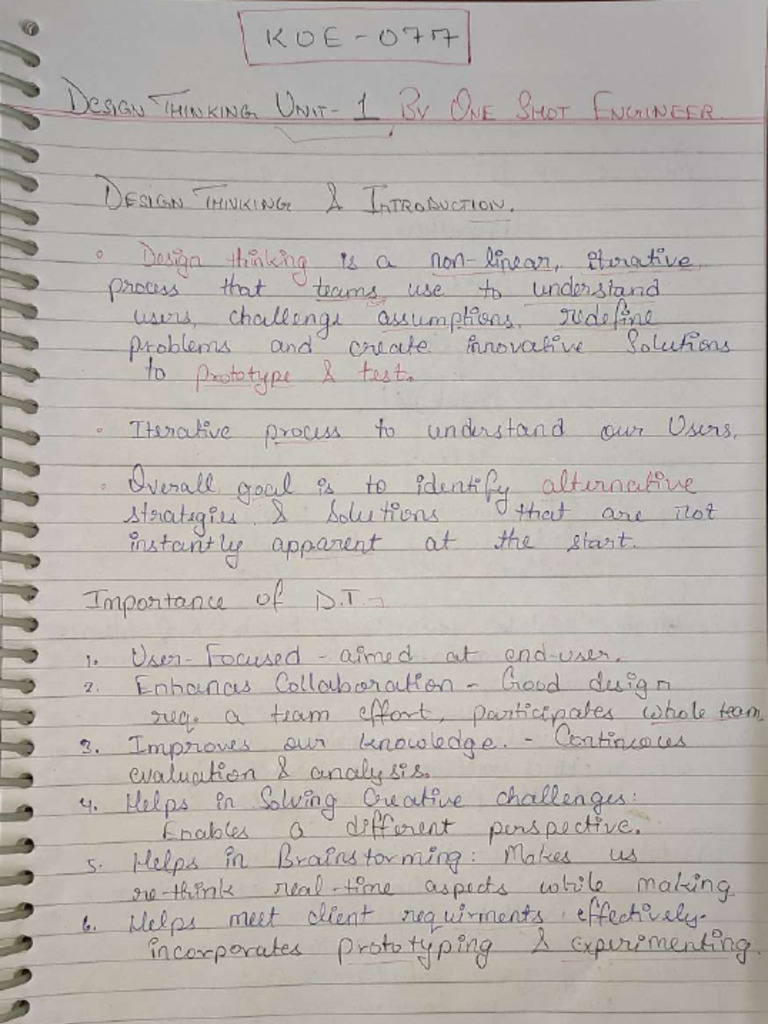 KOE-077
DESIGN THINKING UNIT-1 BY ONE SHOT ENGINEER
DESIGN THINKING & INTRODUCTION.
Design thinking is a non-linear, iterative
process that teams use to understand
users, challenge assumptions, redefine
problems and create innovative Solutions
to prototype & test.
Iterative process to understand our Users.
Overall goal is to identify alternative
strategies & Solutions that are not
instantly apparent at the start.
Importance of D.T.→
1. User-Focused - aimed at end-user.
2. Enhances Collaboration - Good design
req. a team effort, participates whole team
3. Improves our knowledge. - Continuous
evaluation & analysis.
4. Helps in Solving Creative challenges:
Enables a different perspective.
5. Helps in Brainstorming: Makes us
re-think real-time aspects while making
6. Helps meet client requirments effectively-
incorporates prototyping & experimenting.